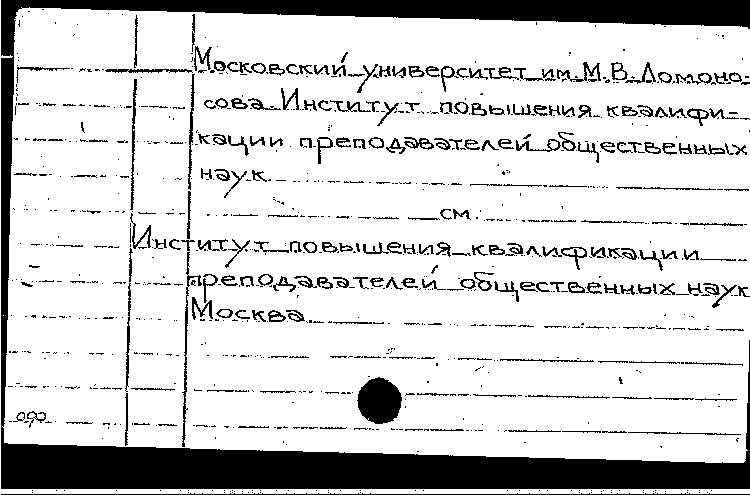 Московский университет им. М.В. Ломоно-
сова Институт повышения квалифи-
кации преподавателей общественных
наук
см.
Институт повышения квалификации
преподавателей общественных наук
Москва.